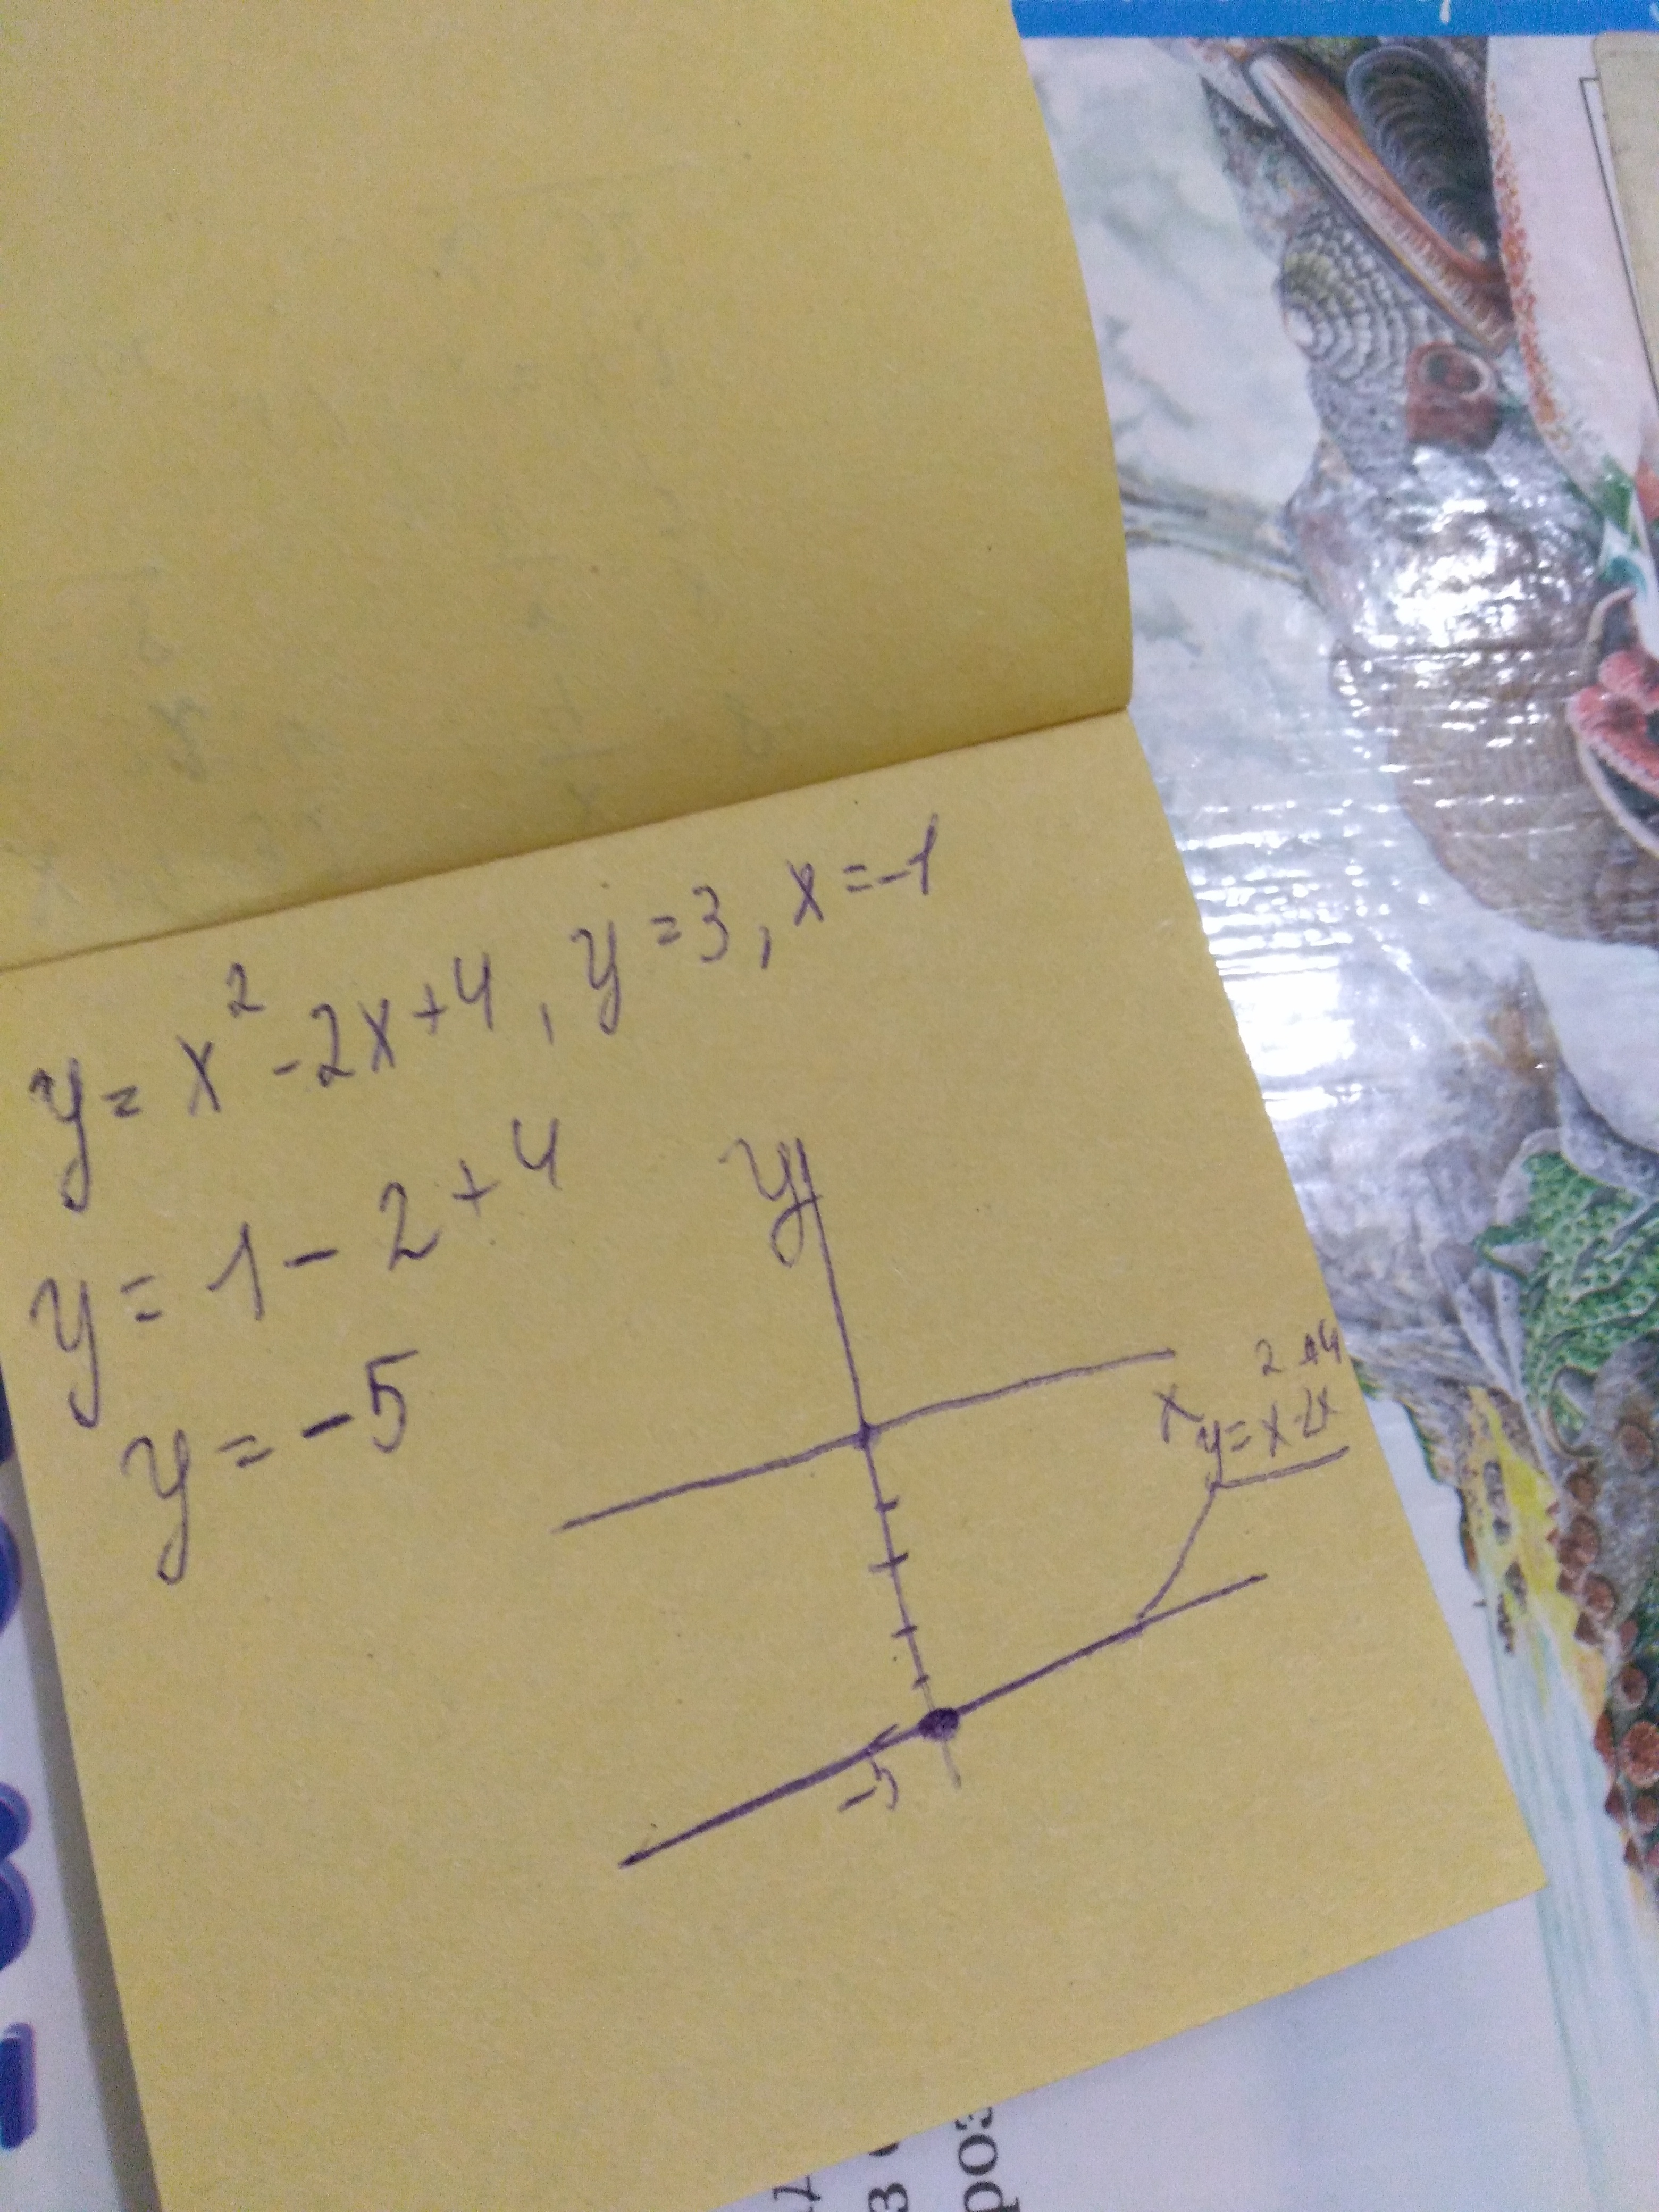 y = x² - 2x + 4, y = 3, x = -1
y = 1 - 2 + 4
y = -5
y
x
y = x² - 2x + 4
-5
роз